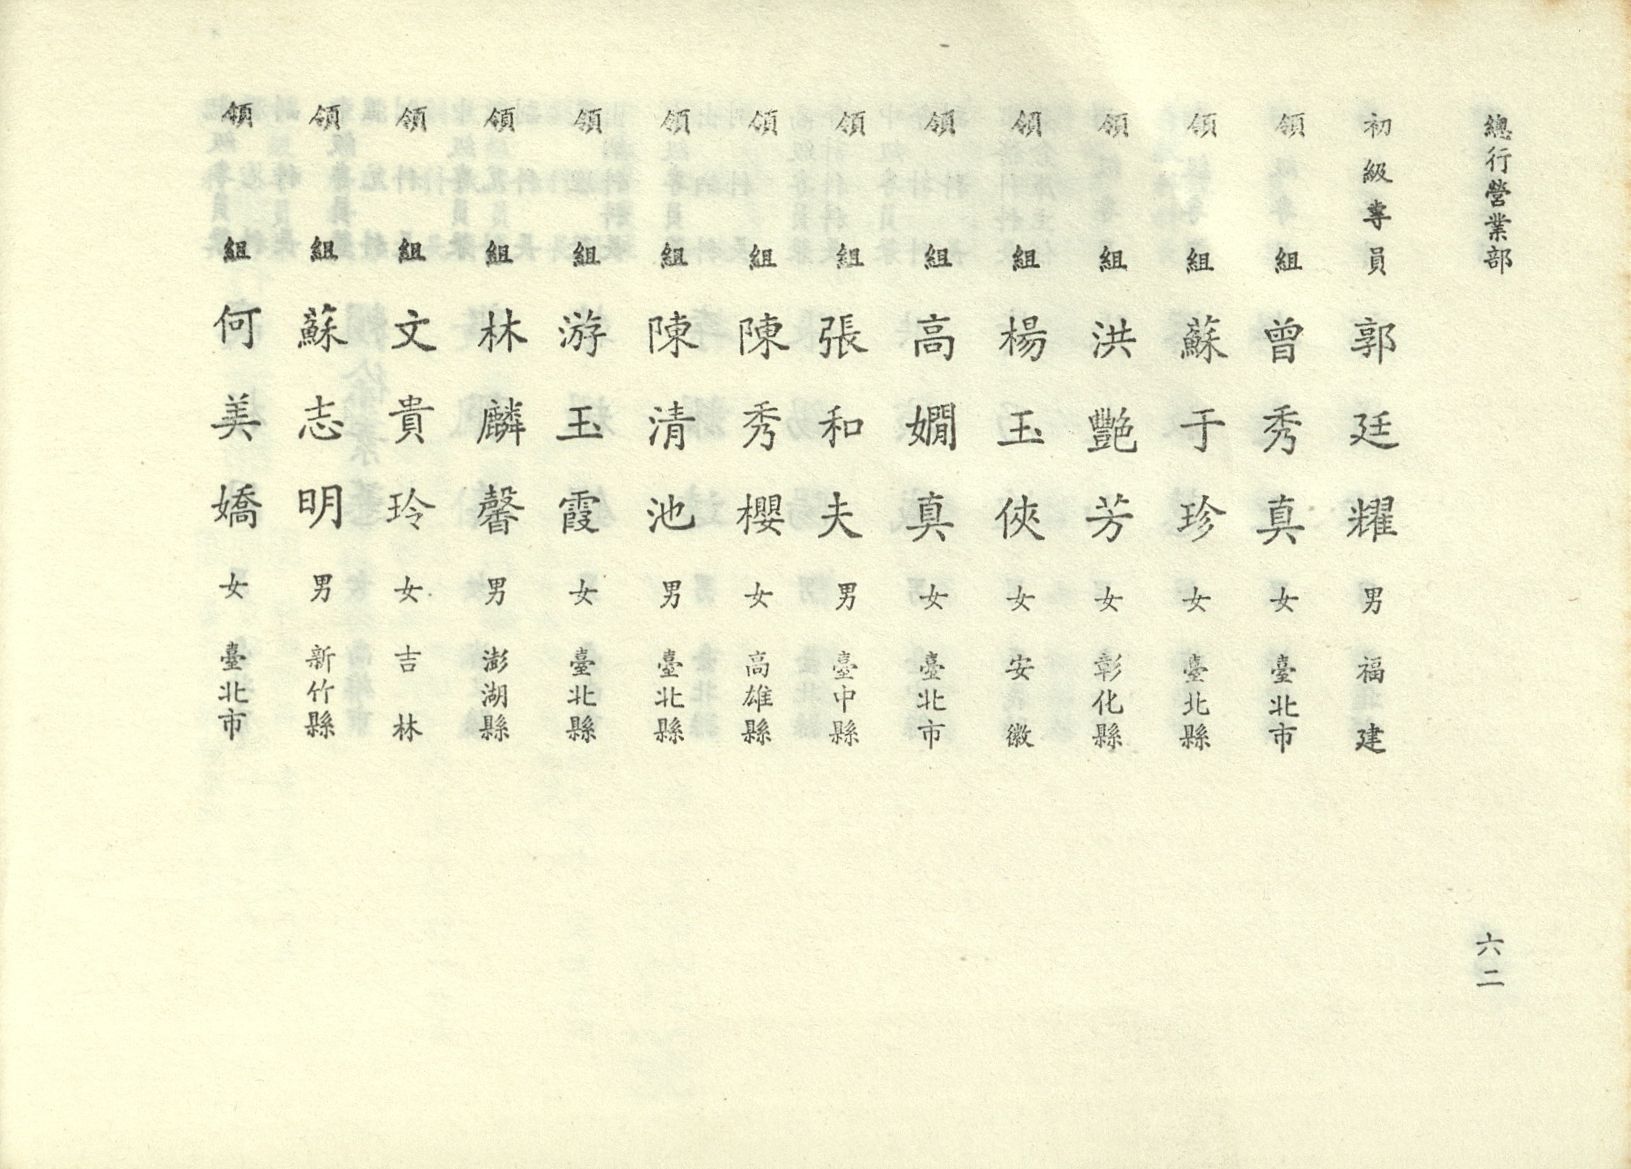 總行營業部
初級專員 郭廷耀 男 福建
領組 曾秀真 女 臺北市
領組 蘇于珍 女 臺北縣
領組 洪艷芳 女 彰化縣
領組 楊玉俠 女 安徽
領組 高嫺真 女 臺北市
領組 張和夫 男 臺中縣
領組 陳秀櫻 女 高雄縣
領組 陳清池 男 臺北縣
領組 游玉霞 女 臺北縣
領組 林麟馨 男 澎湖縣
領組 文貴玲 女 吉林
領組 蘇志明 男 新竹縣
領組 何美嬌 女 臺北市
六二